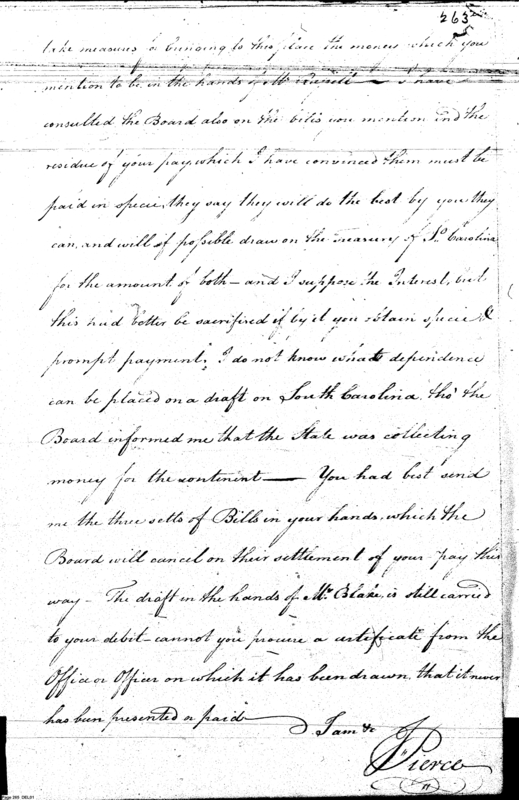 263
take measures for bringing to this place the moneys which you
mention to be in the hands of Mr Russell — I have
consulted the Board also on the bills you mention and the
residue of your pay, which I have convinced them must be
paid in specie, they say they will do the best by you they
can, and will if possible draw on the treasury of So Carolina
for the amount of both — and I suppose the Interest, but
this had better be sacrificed if by it you obtain specie &
prompt payment; I do not know what dependence
can be placed on a draft on South Carolina, tho' the
Board informed me that the State was collecting
money for the continent — You had best send
me the three setts of Bills in your hands, which the
Board will cancel on their settlement of your pay this
way — The draft in the hands of Mr Blake, is still carried
to your debit — cannot you procure a certificate from the
Office or Officer on which it has been drawn, that it never
has been presented or paid —
I am &c
J Pierce
Page 263 DEL01